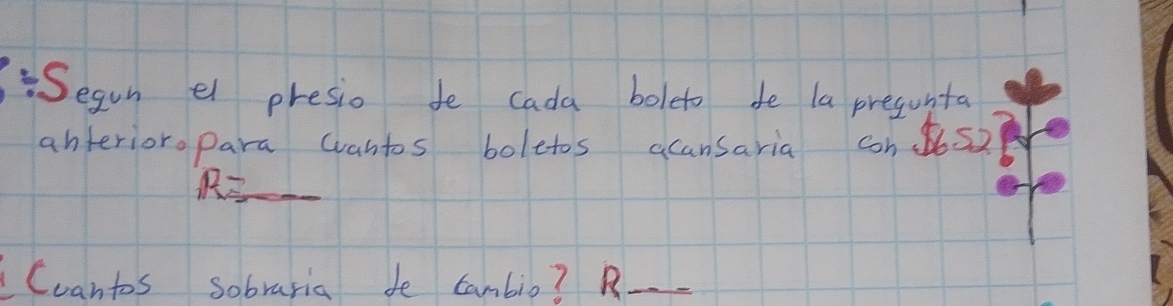 :Segun el presio de cada boleto de la pregunta
anterior. para cuantos boletos acansaria con $652?
R=___
¿Cuantos sobraria de cambio? R___